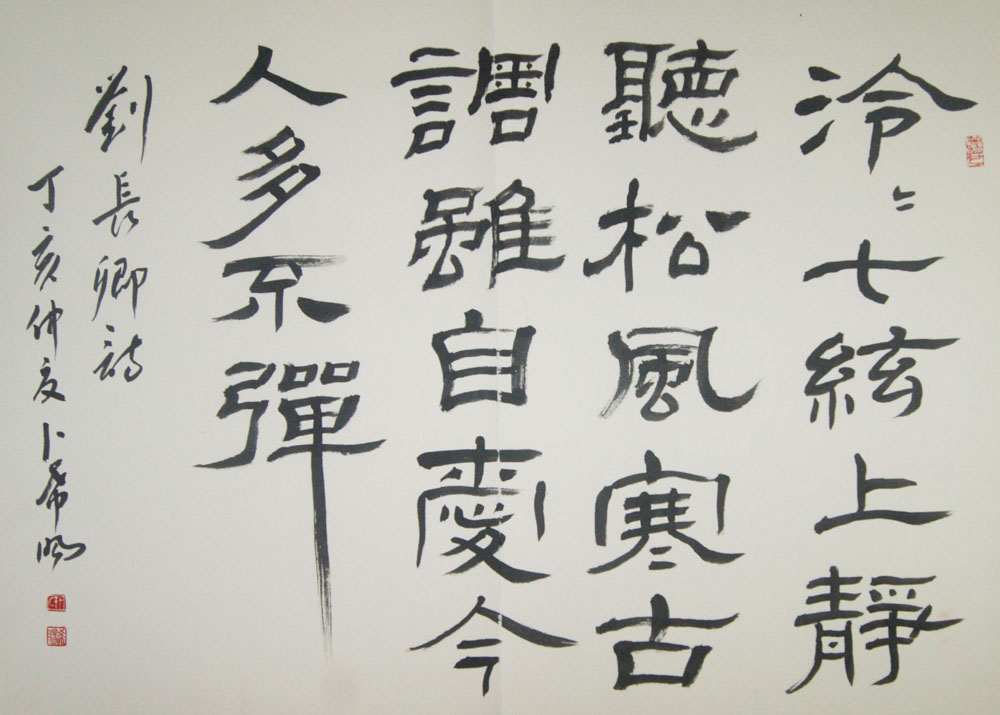 泠〻七絃上靜
聽松風寒古
調雖自愛今
人多不彈
劉長卿詩
丁亥仲夏卜希旸